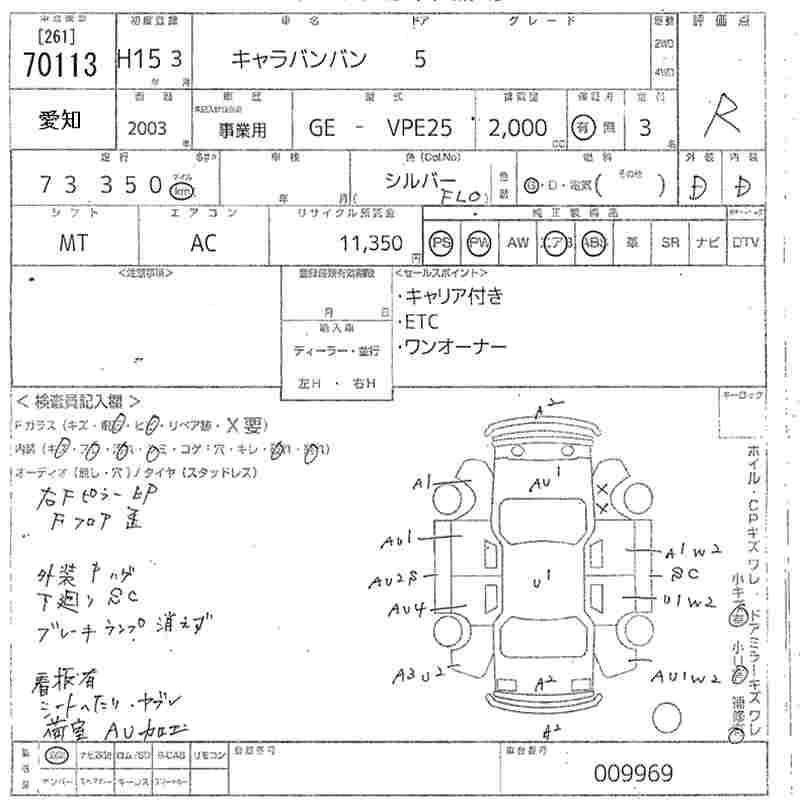 [261]
70113
初度登録
H15 3
年 月
車名 ドア グレード
キャラバンバン 5
駆動
2WD
4WD
評価点
R
愛知
2003
年
車歴
事業用
型式
GE - VPE25
排気量
2,000
cc
保証书
有 無
定員
3
名
走行
73350
マイル
km
車検
年 月
色(Col.No)
シルバー
FLO
燃料
G・D・電気( その他 )
外装 内装
D D
シフト
MT
エアコン
AC
リサイクル預託金
11,350
円
純正装備品
PS PW AW エアB ABS 革 SR ナビ DTV
<注意事項>
登録書類有効期限
月 日
輸入車
ディーラー・並行
左H ・ 右H
<セールスポイント>
・キャリア付き
・ETC
・ワンオーナー
キーロック
<検査員記入欄>
Fガラス(キズ・ ・ヒ ・リペア跡・X要)
オーディオ(無し・穴)/タイヤ(スタッドレス)
右Fピラー EP
Fフロア
外装 キハゲ
下廻り SC
ブレーキランプ 消えず
看板有
シートへたり・ヤブレ
荷室 AU カロエ
A2
A1
AU1
X
X
AU1
A1 W2
AU2S
U1
SC
AU4
U1W2
A3U2
A2
AU1W2
A2
ホイル・CPキズ ワレ・ドアミラーキズ ワレ
小キズ有 小U有 補修有
ナビ ロム/SD B-CAS リモコン
キーレス
登録番号
車台番号
009969